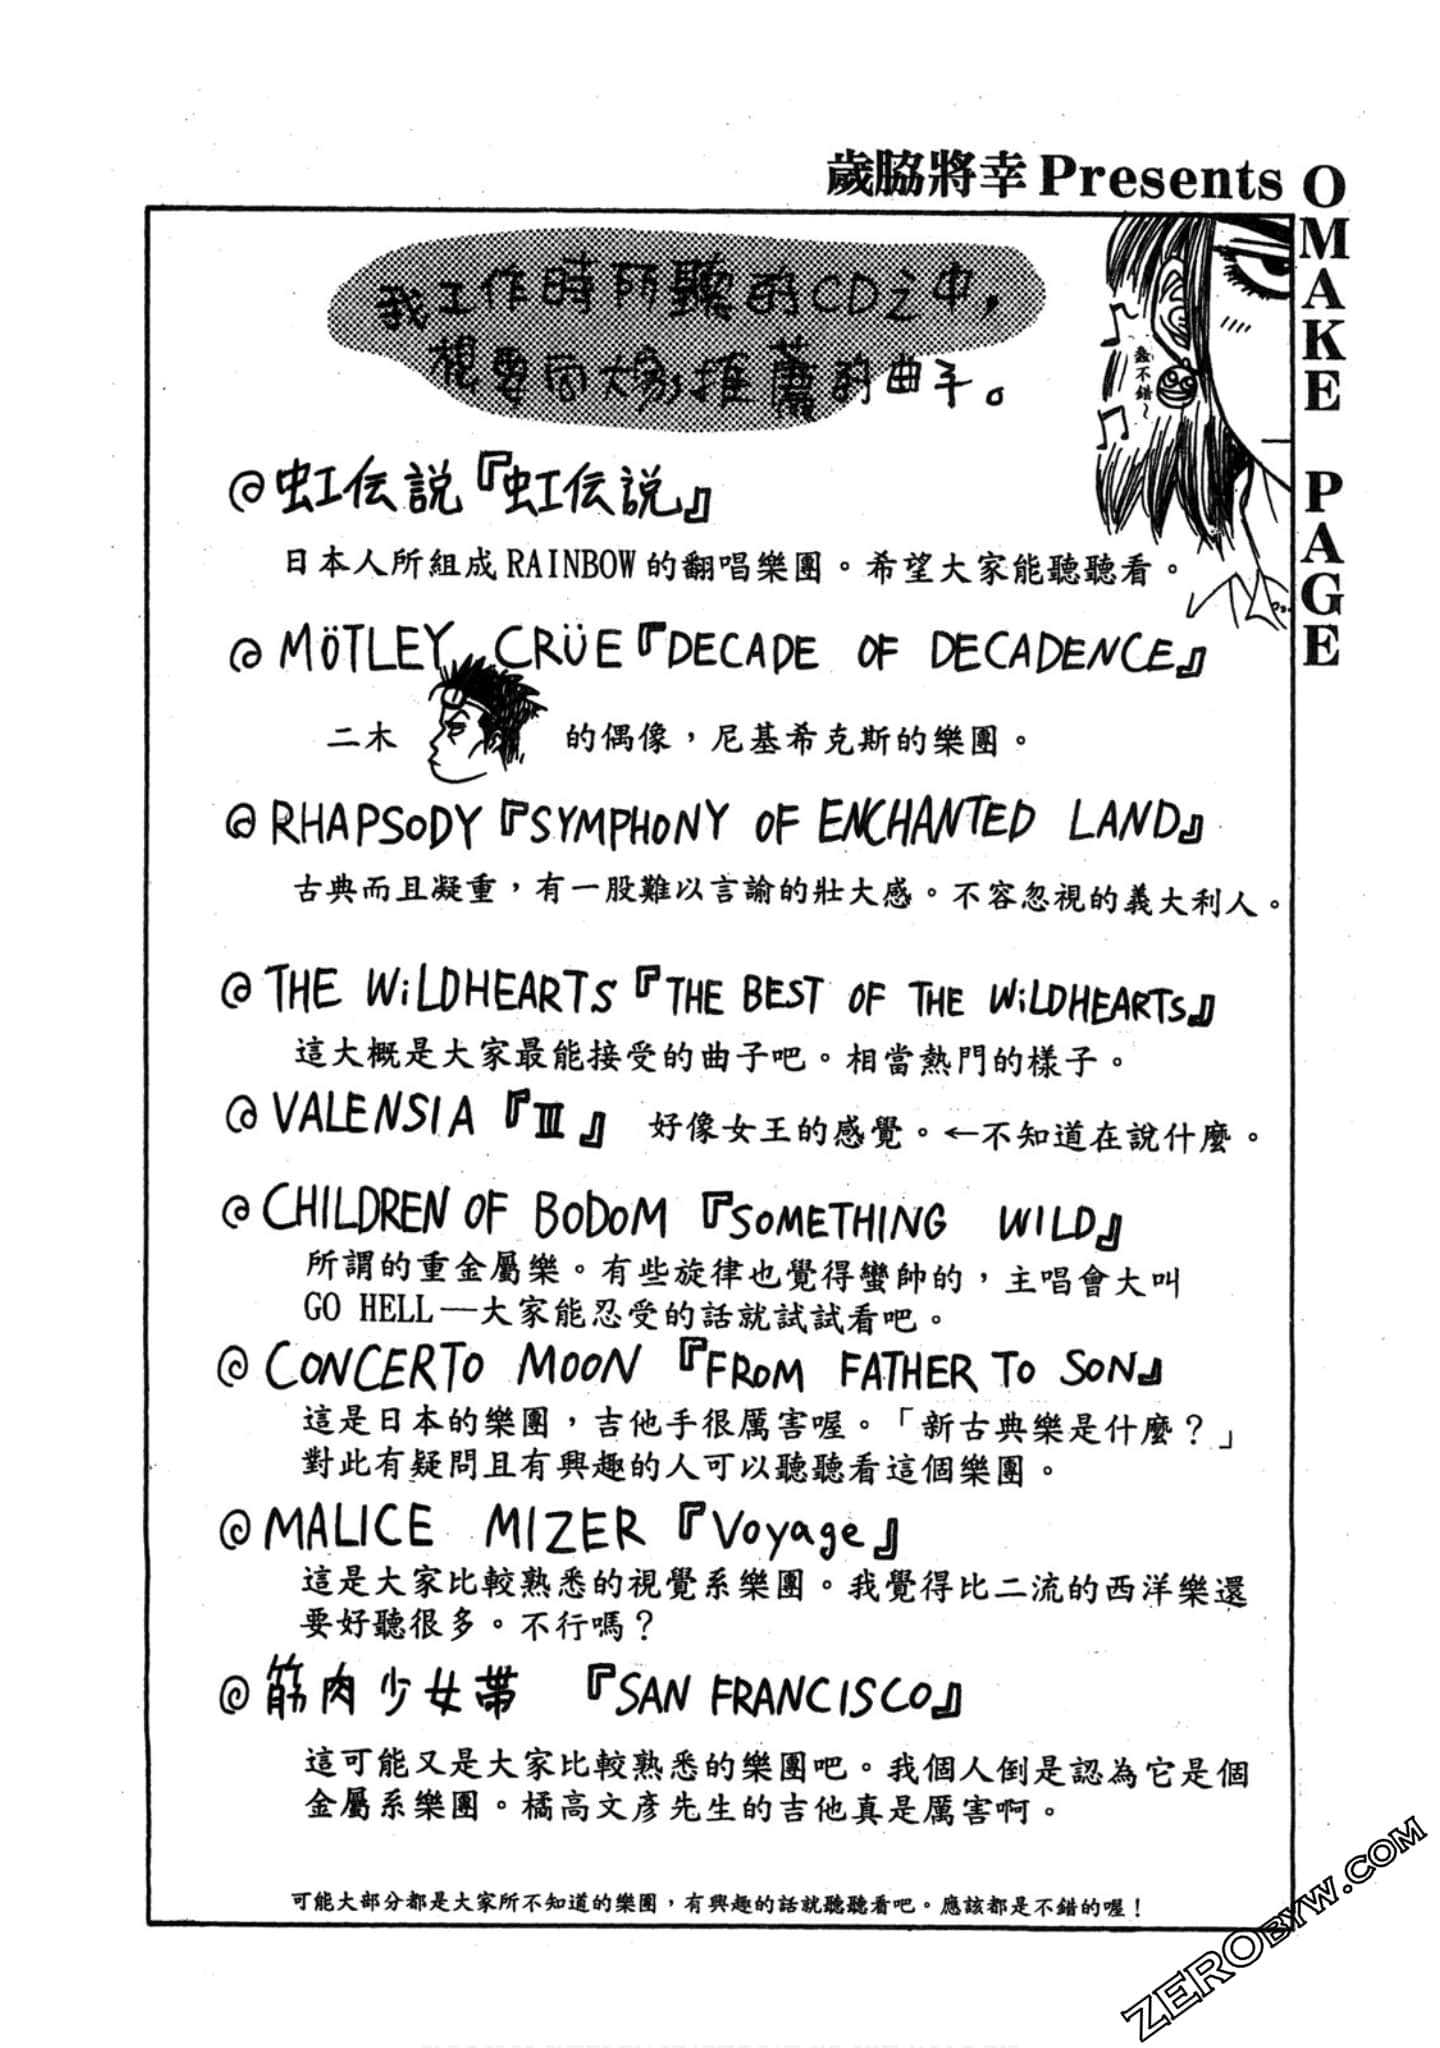 歲脇將幸Presents
OMAKE PAGE
我工作時所聽的CD之中，
想要向大家推薦的曲子。
蠻不錯～
@虹伝説『虹伝説』
日本人所組成RAINBOW的翻唱樂團。希望大家能聽聽看。
@MÖTLEY CRÜE『DECADE OF DECADENCE』
二木的偶像，尼基希克斯的樂團。
@RHAPSODY『SYMPHONY OF ENCHANTED LAND』
古典而且凝重，有一股難以言諭的壯大感。不容忽視的義大利人。
@THE WiLDHEARTS『THE BEST OF THE WiLDHEARTS』
這大概是大家最能接受的曲子吧。相當熱門的樣子。
@VALENSIA『Ⅲ』 好像女王的感覺。←不知道在說什麼。
@CHILDREN OF BODOM『SOMETHING WILD』
所謂的重金屬樂。有些旋律也覺得蠻帥的，主唱會大叫
GO HELL—大家能忍受的話就試試看吧。
@CONCERTO MOON『FROM FATHER TO SON』
這是日本的樂團，吉他手很厲害喔。「新古典樂是什麼？」
對此有疑問且有興趣的人可以聽聽看這個樂團。
@MALICE MIZER『Voyage』
這是大家比較熟悉的視覺系樂團。我覺得比二流的西洋樂還
要好聽很多。不行嗎？
@筋肉少女帯 『SAN FRANCISCO』
這可能又是大家比較熟悉的樂團吧。我個人倒是認為它是個
金屬系樂團。橘高文彥先生的吉他真是厲害啊。
可能大部分都是大家所不知道的樂團，有興趣的話就聽聽看吧。應該都是不錯的喔！
ZEROBYW.COM